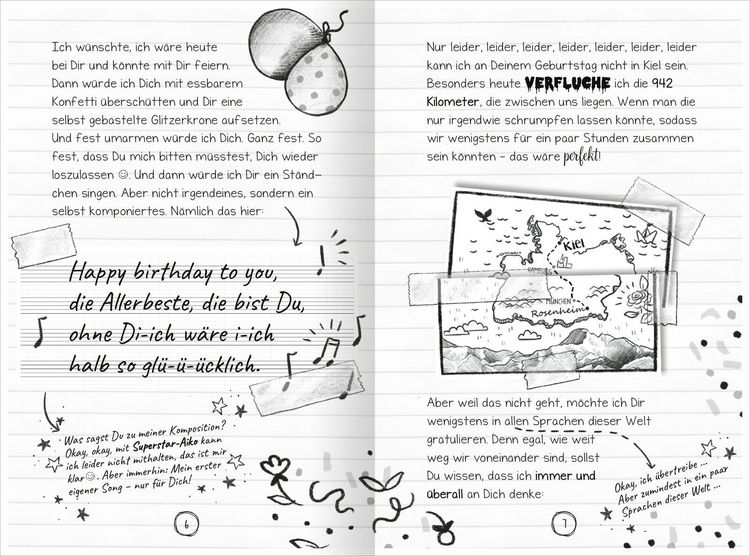 Ich wünschte, ich wäre heute
bei Dir und könnte mit Dir feiern.
Dann würde ich Dich mit essbarem
Konfetti überschütten und Dir eine
selbst gebastelte Glitzerkrone aufsetzen.
Und fest umarmen würde ich Dich. Ganz fest. So
fest, dass Du mich bitten müsstest, Dich wieder
loszulassen ☺. Und dann würde ich Dir ein Ständ-
chen singen. Aber nicht irgendeines, sondern ein
selbst komponiertes. Nämlich das hier:
Happy birthday to you,
die Allerbeste, die bist Du,
ohne Di-ich wäre i-ich
halb so glü-ü-ücklich.
Was sagst Du zu meiner Komposition?
Okay, okay, mit Superstar-Aiko kann
ich leider nicht mithalten, das ist mir
klar ☺. Aber immerhin: Mein erster
eigener Song – nur für Dich!
6
Nur leider, leider, leider, leider, leider, leider, leider
kann ich an Deinem Geburtstag nicht in Kiel sein.
Besonders heute VERFLUCHE ich die 942
Kilometer, die zwischen uns liegen. Wenn man die
nur irgendwie schrumpfen lassen könnte, sodass
wir wenigstens für ein paar Stunden zusammen
sein könnten – das wäre perfekt!
Kiel
HAMBURG
MÜNCHEN
Rosenheim
Aber weil das nicht geht, möchte ich Dir
wenigstens in allen Sprachen dieser Welt
gratulieren. Denn egal, wie weit
weg wir voneinander sind, sollst
Du wissen, dass ich immer und
überall an Dich denke:
Okay, ich übertreibe ...
Aber zumindest in ein paar
Sprachen dieser Welt ...
7